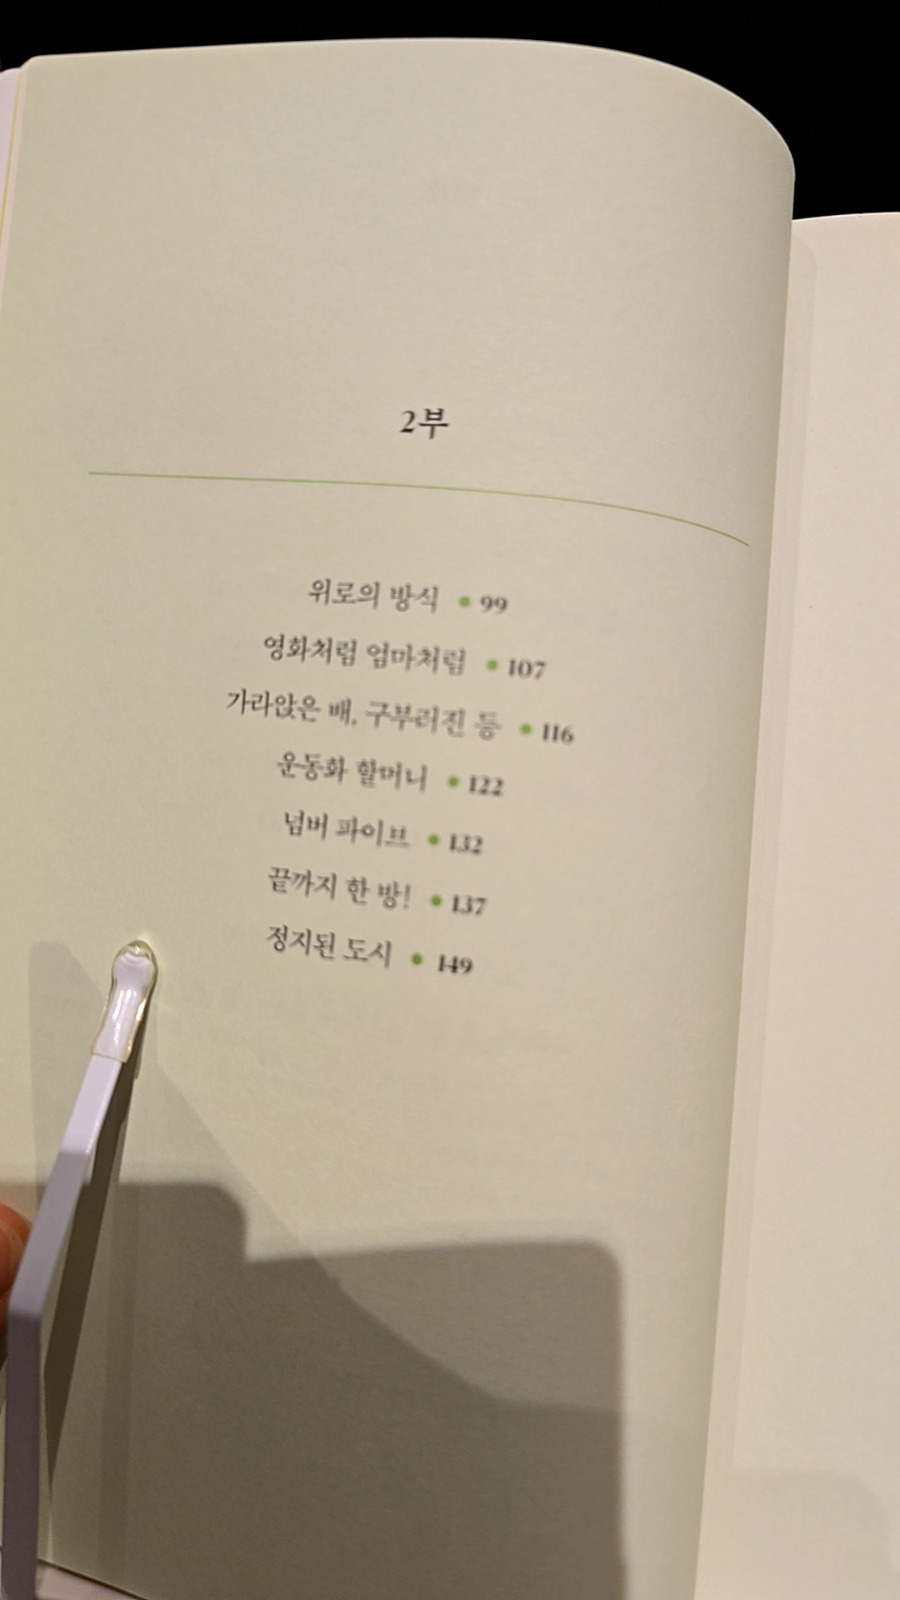 2부
위로의 방식 • 99
영화처럼 엄마처럼 • 107
가라앉은 배, 구부러진 등 • 116
운동화 할머니 • 122
넘버 파이브 • 132
끝까지 한 방! • 137
정지된 도시 • 149